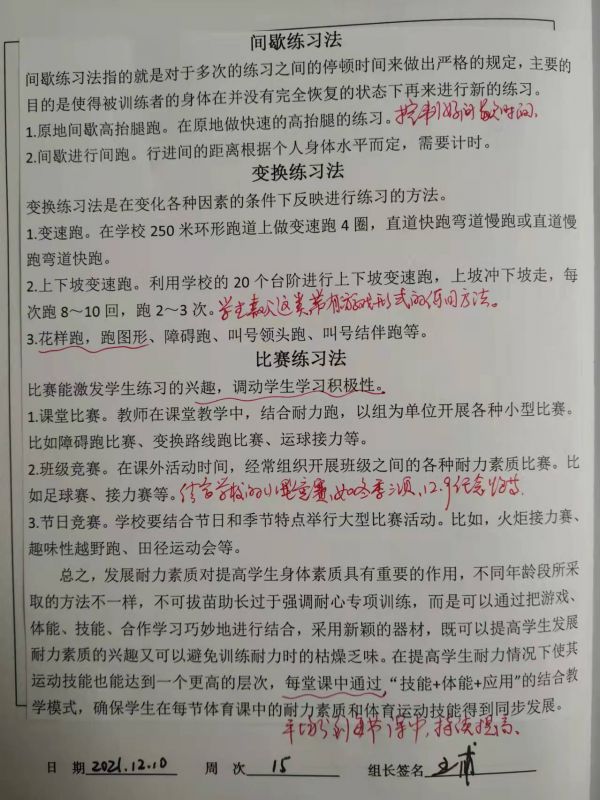 间歇练习法
间歇练习法指的就是对于多次的练习之间的停顿时间来做出严格的规定，主要的
目的是使得被训练者的身体在并没有完全恢复的状态下再来进行新的练习。
1.原地间歇高抬腿跑。在原地做快速的高抬腿的练习。控制好间歇时间。
2.间歇进行间跑。行进间的距离根据个人身体水平而定，需要计时。
变换练习法
变换练习法是在变化各种因素的条件下反映进行练习的方法。
1.变速跑。在学校 250 米环形跑道上做变速跑 4 圈，直道快跑弯道慢跑或直道慢
跑弯道快跑。
2.上下坡变速跑。利用学校的 20 个台阶进行上下坡变速跑，上坡冲下坡走，每
次跑 8～10 回，跑 2～3 次。学生喜欢这类带有游戏形式的练习方法。
3.花样跑，跑图形、障碍跑、叫号领头跑、叫号结伴跑等。
比赛练习法
比赛能激发学生练习的兴趣，调动学生学习积极性。
1.课堂比赛。教师在课堂教学中，结合耐力跑，以组为单位开展各种小型比赛。
比如障碍跑比赛、变换路线跑比赛、运球接力等。
2.班级竞赛。在课外活动时间，经常组织开展班级之间的各种耐力素质比赛。比
如足球赛、接力赛等。结合学校的小型竞赛，如冬季三项，12.9纪念
3.节日竞赛。学校要结合节日和季节特点举行大型比赛活动。比如，火炬接力赛、
趣味性越野跑、田径运动会等。
总之，发展耐力素质对提高学生身体素质具有重要的作用，不同年龄段所采
取的方法不一样，不可拔苗助长过于强调耐心专项训练，而是可以通过把游戏、
体能、技能、合作学习巧妙地进行结合，采用新颖的器材，既可以提高学生发展
耐力素质的兴趣又可以避免训练耐力时的枯燥乏味。在提高学生耐力情况下使其
运动技能也能达到一个更高的层次，每堂课中通过“技能+体能+应用”的结合教
学模式，确保学生在每节体育课中的耐力素质和体育运动技能得到同步发展。
到每节课中，持续提高。
日 期 2021.12.10 周 次 15 组长签名